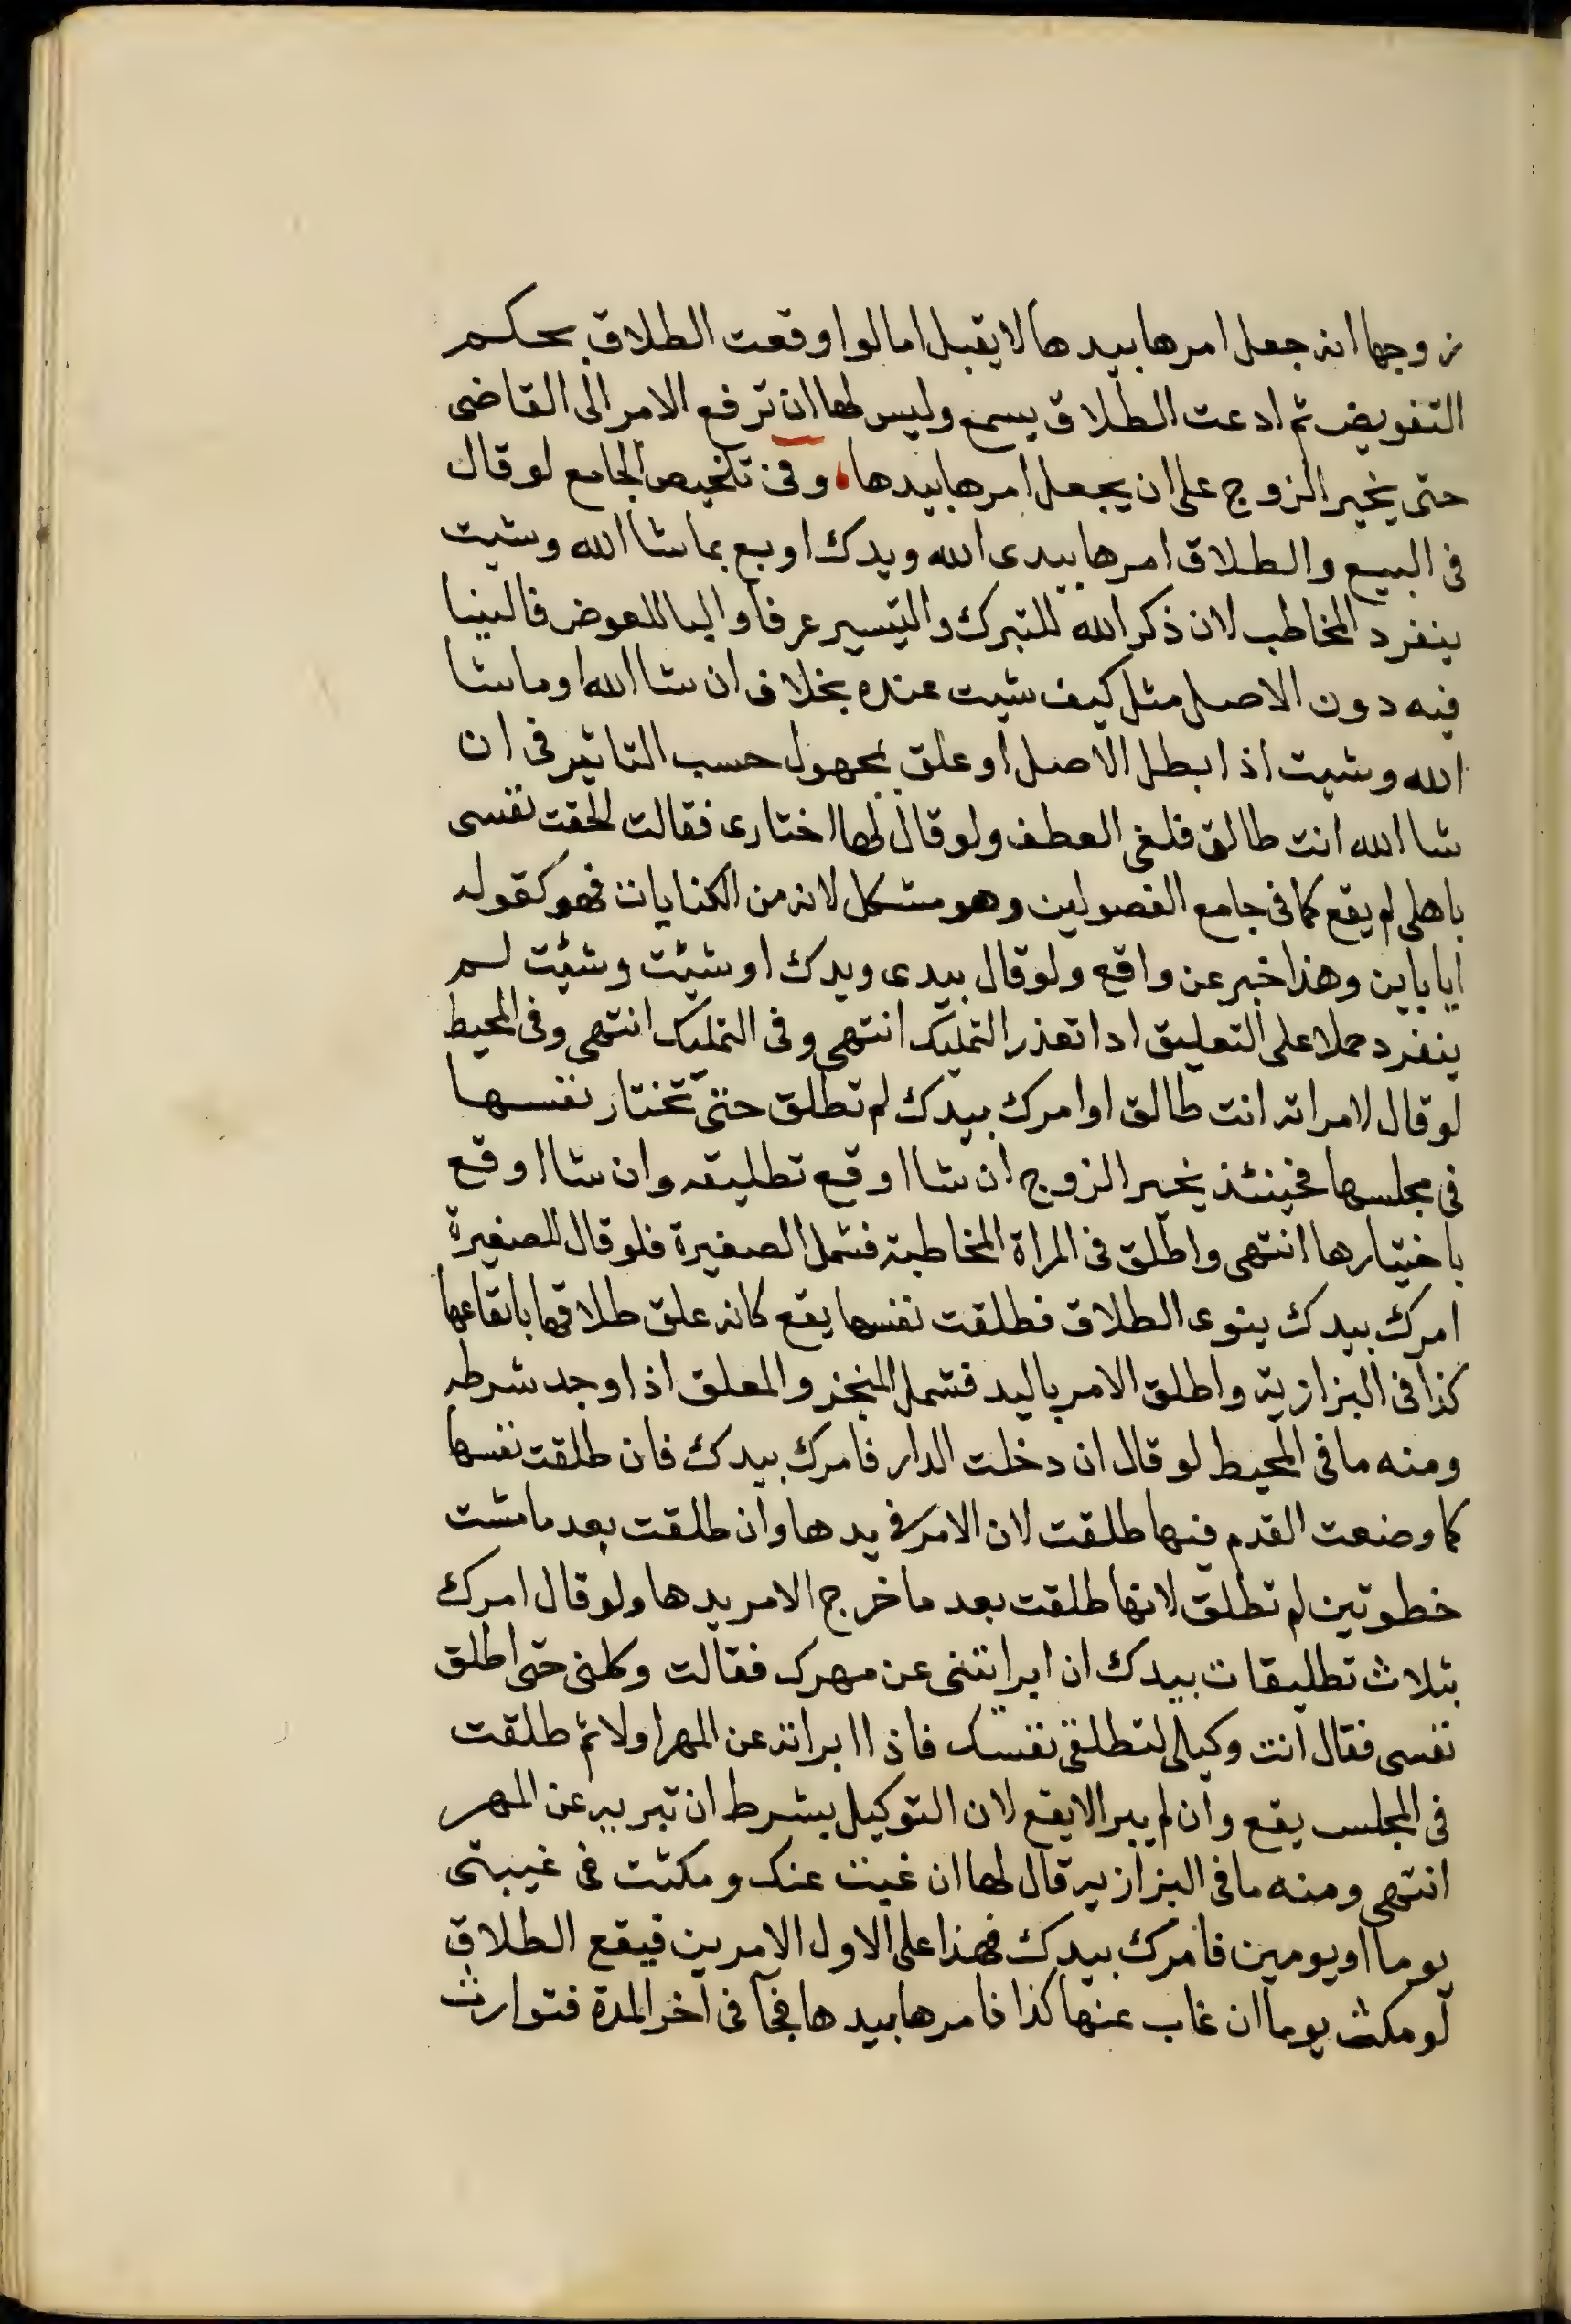 زوجها انه جعل امرها بيدها لا يقبل اما لو اوقعت الطلاق بحكم
التفويض ثم ادعت الطلاق يسمع وليس لها ان ترفع الامر الى القاضى
حتى يخير الزوج على ان يجعل امرها بيدها، وفى تلخيص الجامع لو قال
فى البيع والطلاق امرها بيدى الله ويدك او بع بما شا الله وشيت
ينفرد المخاطب لان ذكر الله للتبرك والتيسير عرفا والبا للعوض فالبنيا
فيه دون الاصل مثل كيف شيت عنده بخلاف ان شا الله او ما شا
الله وشيت اذ ابطل الاصل او علق بمجهول حسب التاثير فى ان
شا الله انت طالق فلغى العطف ولو قال لها اختارى فقالت لحقت نفسى
باهلى لم يقع كما فى جامع الفصولين وهو مشكل لانه من الكنايات فهو كقوله
ايا باين وهذا خبر عن واقع ولو قال بيدى ويدك او شيئت وشئت لم
ينفرد حملا على التعليق اداتعذر التمليك انتهى وفى التمليك انتهى وفى المحيط
لو قال لامراته انت طالق او امرك بيدك لم تطلق حتى تختار نفسها
فى مجلسها فحينئذ يخير الزوج ان شا اوقع تطليقه وان شا اوقع
باختيارها انتهى واطلق فى المراة المخاطبة فشمل الصغيرة فلو قال للصغيرة
امرك بيدك ينوى الطلاق فطلقت نفسها يقع كانه علق طلاقها بايقاعها
كذا فى البزازية واطلق الامر باليد فشمل المنجز والمعلق اذا وجد شرطه
ومنه ما فى المحيط لو قال ان دخلت الدار فامرك بيدك فان طلقت نفسها
كما وضعت القدم فيها طلقت لان الامر فى يدها وان طلقت بعد ما مشت
خطوتين لم تطلق لانها طلقت بعد ما خرج الامر يدها ولو قال امرك
بثلاث تطليقات بيدك ان ابراتنى عن مهرك فقالت وكلنى حتى اطلق
نفسى فقال انت وكيلى لتطلقى نفسك فاذا ابراته عن المهر اولا ثم طلقت
فى المجلس يقع وان لم يبرا لا يقع لان التوكيل بشرط ان تبريه عن المهر
انتهى ومنه ما فى البزازيه قال لها ان غبت عنك ومكثت فى غيبتى
يوما او يومين فامرك بيدك فهذا على الاول الامرين فيقع الطلاق
لو مكث يوما ان غاب عنها كذا فامرها بيدها فجآ فى اخر المدة فتوارث